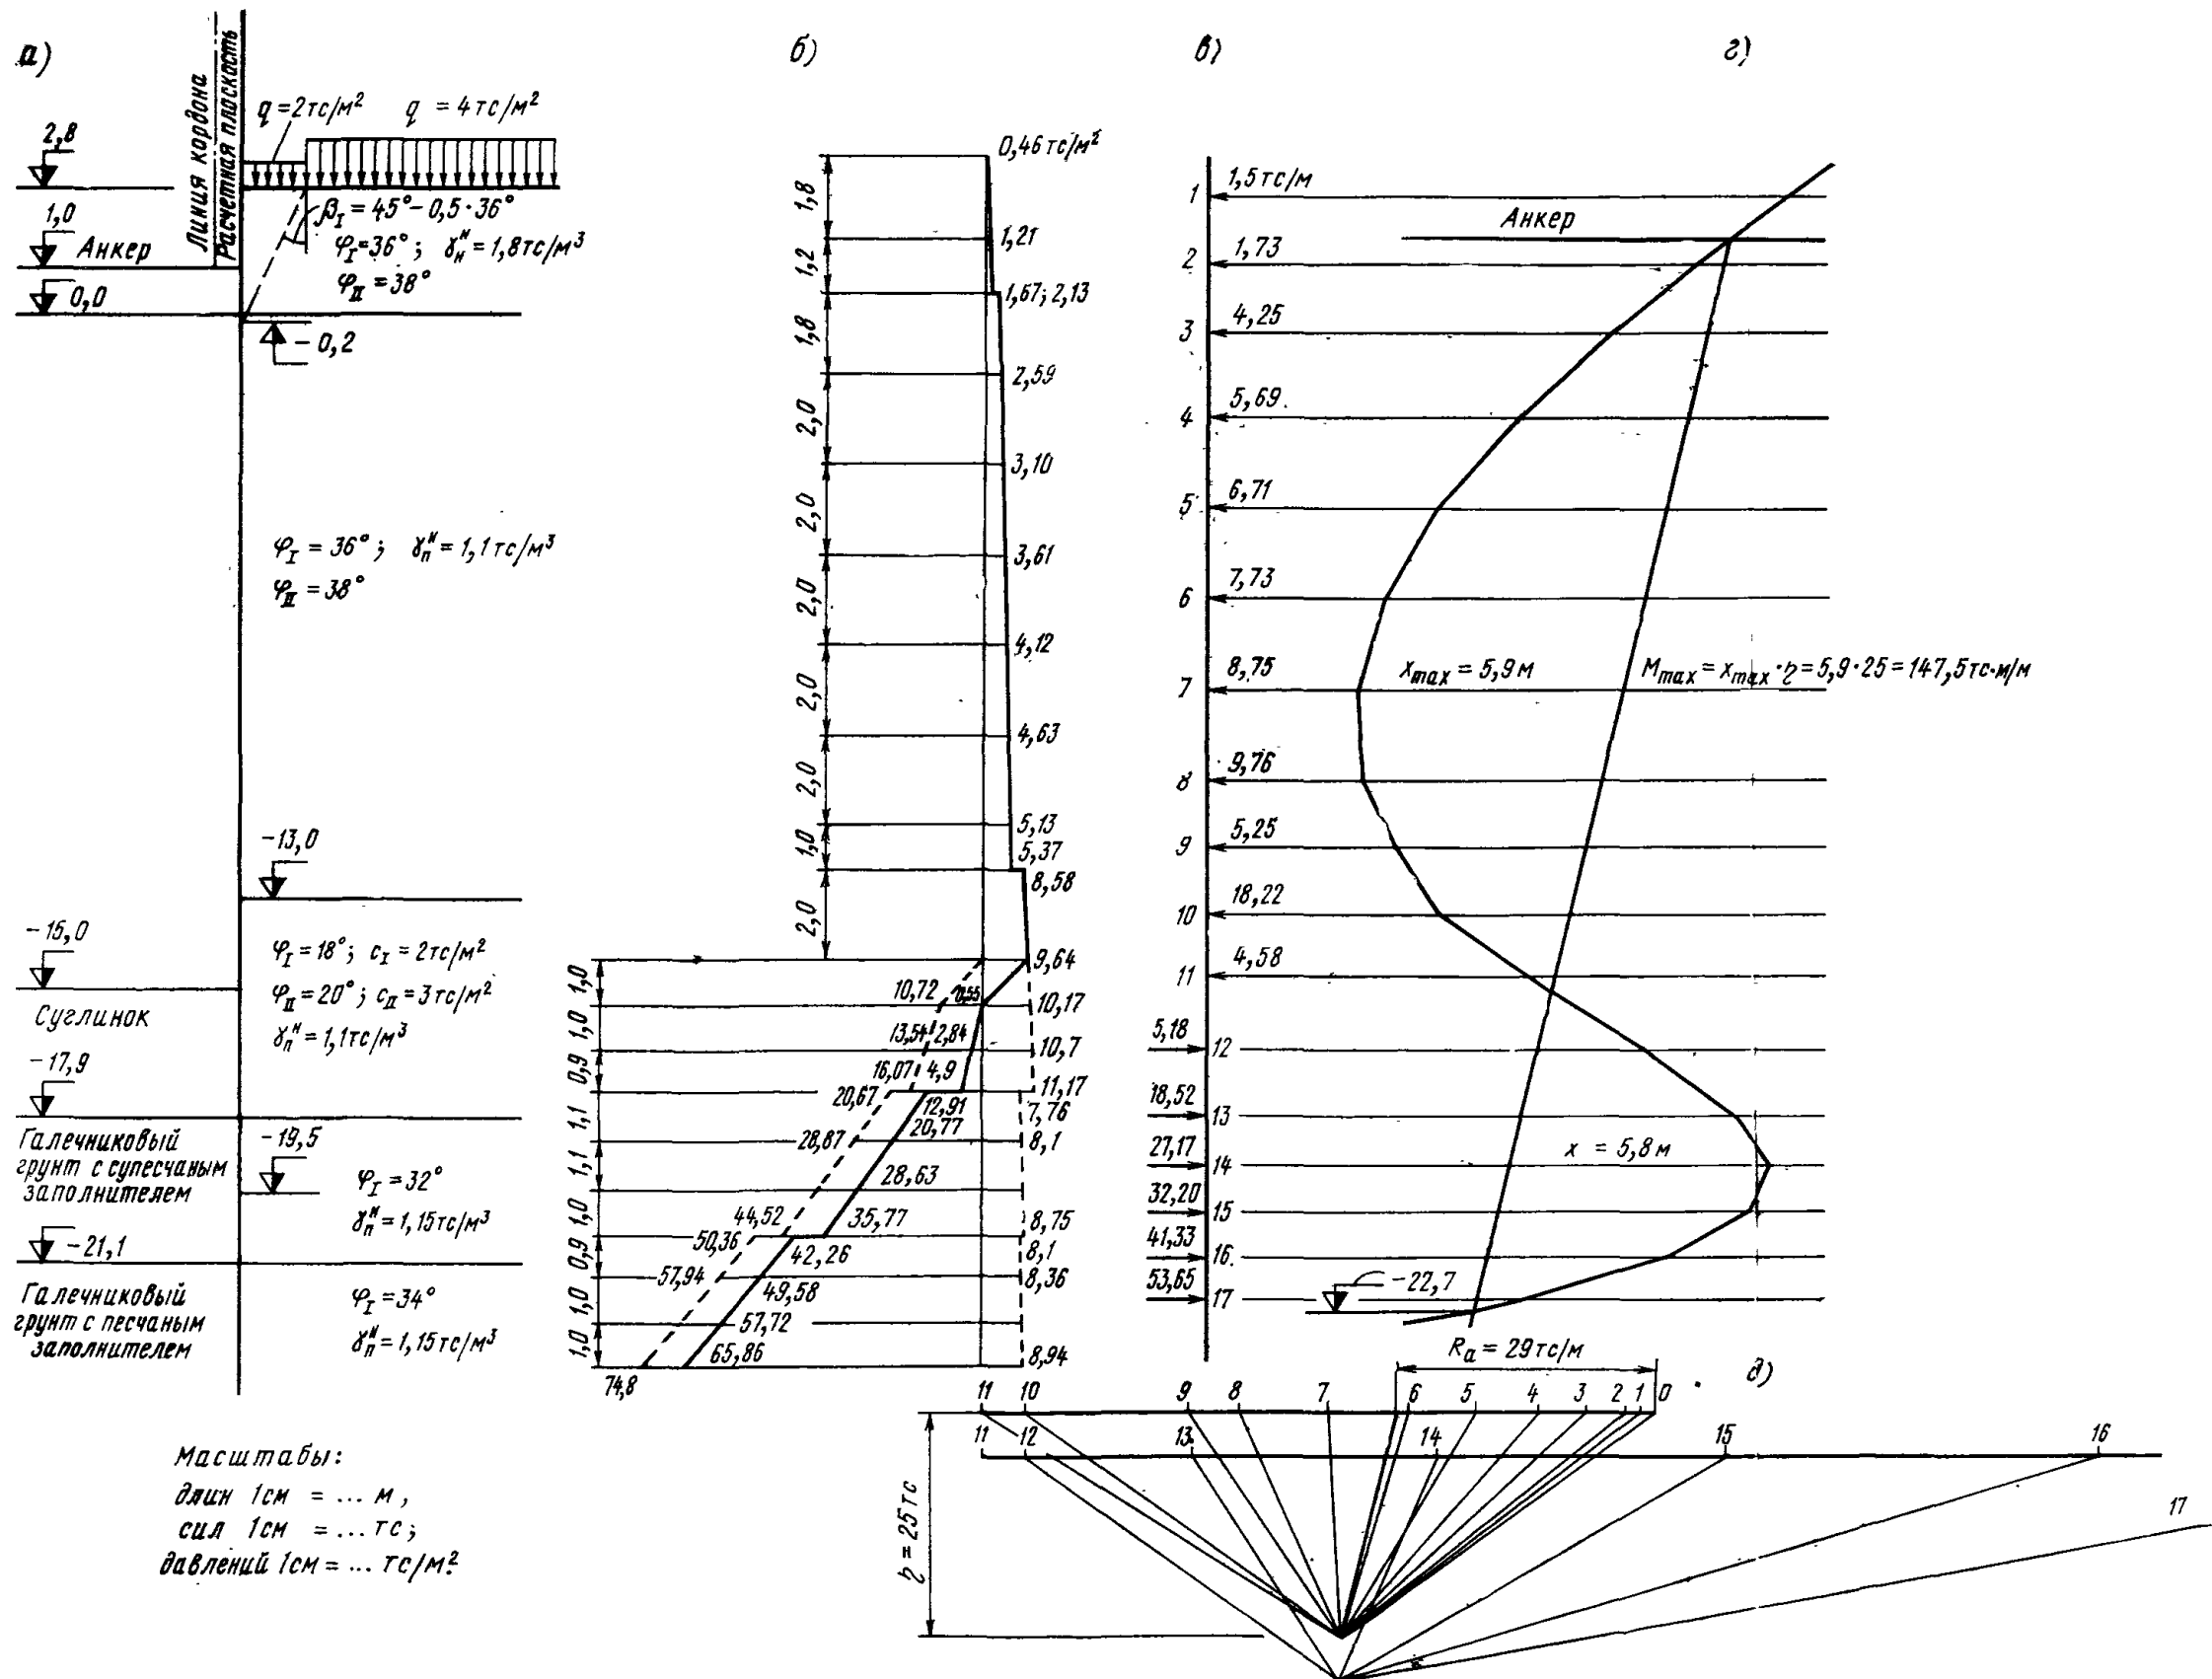 а)
б)
в)
г)
Линия кордона
Расчетная плоскость
q = 2 тс/м²
q = 4 тс/м²
2,8
β_I = 45° - 0,5 · 36°
1,0
Анкер
φ_I = 36°; γ_н^н = 1,8 тс/м³
φ_II = 38°
0,0
- 0,2
φ_I = 36°; γ_п^н = 1,1 тс/м³
φ_II = 38°
-13,0
-15,0
φ_I = 18°; c_I = 2 тс/м²
φ_II = 20°; c_II = 3 тс/м²
γ_п^н = 1,1 тс/м³
Суглинок
-17,9
Галечниковый
грунт с супесчаным
заполнителем
-19,5
φ_I = 32°
γ_п^н = 1,15 тс/м³
-21,1
Галечниковый
грунт с песчаным
заполнителем
φ_I = 34°
γ_п^н = 1,15 тс/м³
Масштабы:
длин 1см = ... м,
сил 1см = ... тс;
давлений 1см = ... тс/м².
0,46 тс/м²
1,8
1,21
1,2
1,67; 2,13
1,8
2,59
2,0
3,10
2,0
3,61
2,0
4,12
2,0
4,63
2,0
5,13
1,0
5,37
8,58
2,0
9,64
1,0
10,72
0,55
10,17
1,0
13,54
2,84
10,7
0,9
16,07
4,9
11,17
20,67
12,91
7,76
1,1
28,87
20,77
8,1
1,1
28,63
1,0
44,52
35,77
8,75
50,36
42,26
8,1
0,9
57,94
49,58
8,36
1,0
57,72
1,0
65,86
8,94
74,8
1
1,5 тс/м
Анкер
2
1,73
3
4,25
4
5,69
5
6,71
6
7,73
7
8,75
x_max = 5,9 м
M_max = x_max · η = 5,9 · 25 = 147,5 тс·м/м
8
9,76
9
5,25
10
18,22
11
4,58
5,18
12
18,52
13
27,17
14
x = 5,8 м
32,20
15
41,33
16
53,65
17
-22,7
R_a = 29 тс/м
д)
11 10 9 8 7 6 5 4 3 2 1 0
11 12 13 14 15 16
17
η = 25 тс